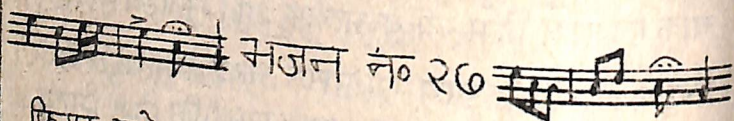 भजन नं० २७